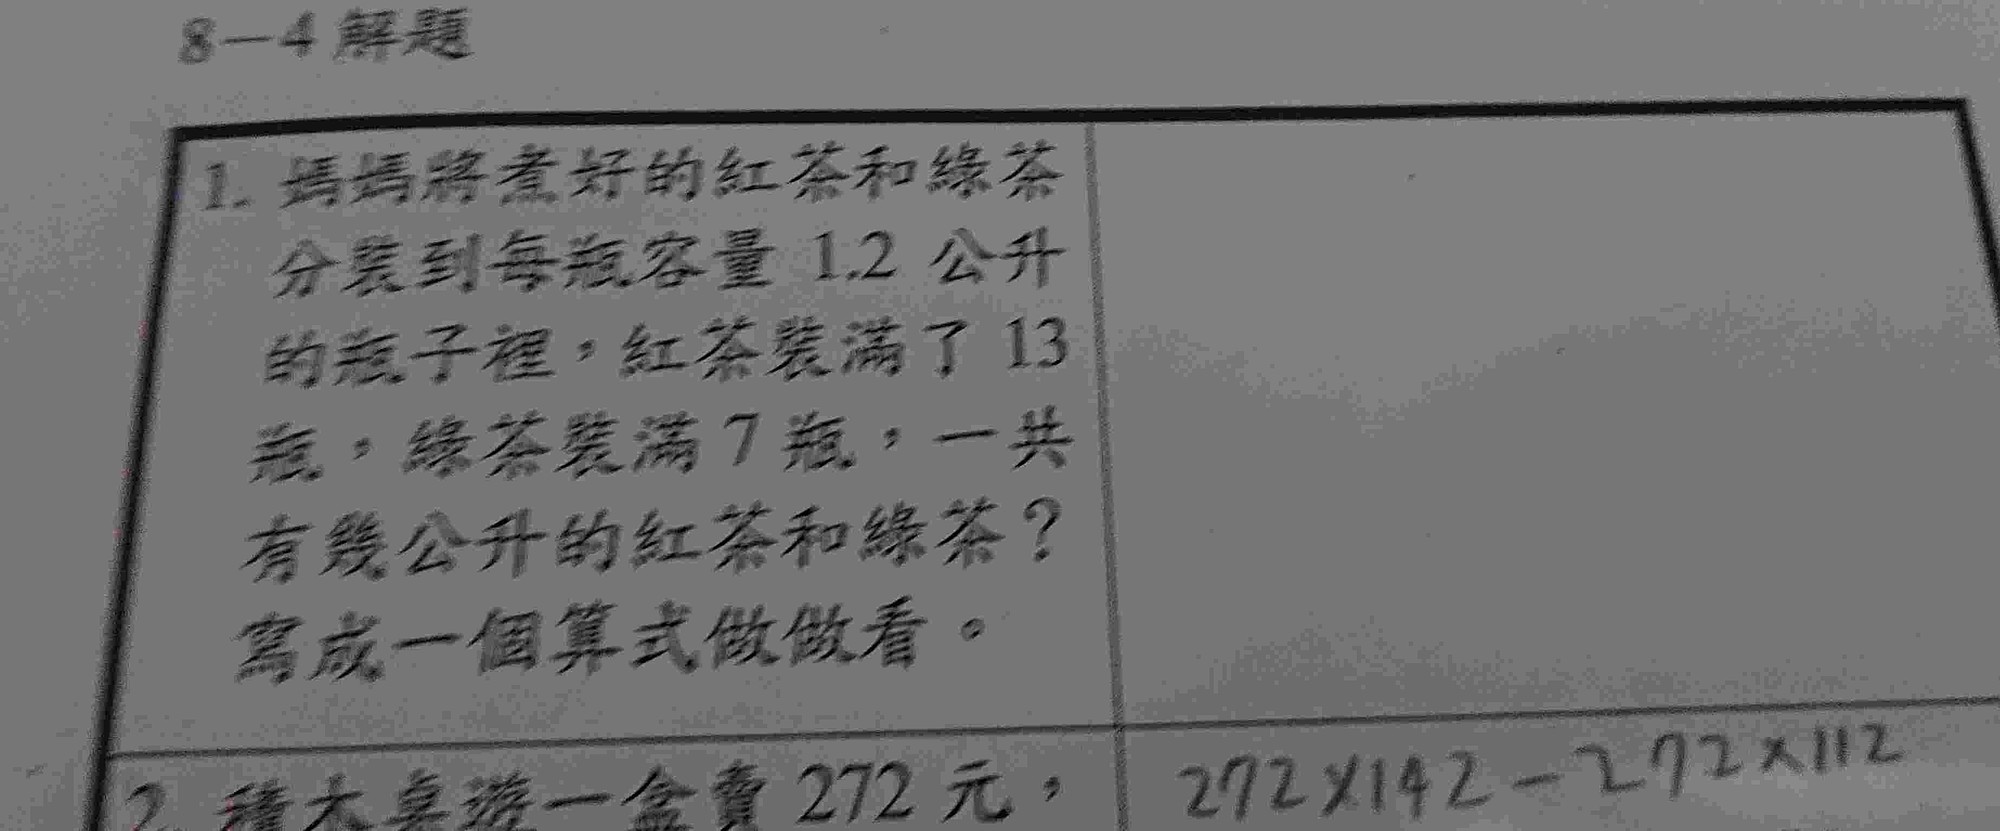 8－4 解題
1. 媽媽將煮好的紅茶和綠茶
分裝到每瓶容量 1.2 公升
的瓶子裡，紅茶裝滿了 13
瓶，綠茶裝滿 7 瓶，一共
有幾公升的紅茶和綠茶？
寫成一個算式做做看。
2. 積木桌遊一盒賣 272 元，
272×142－272×112